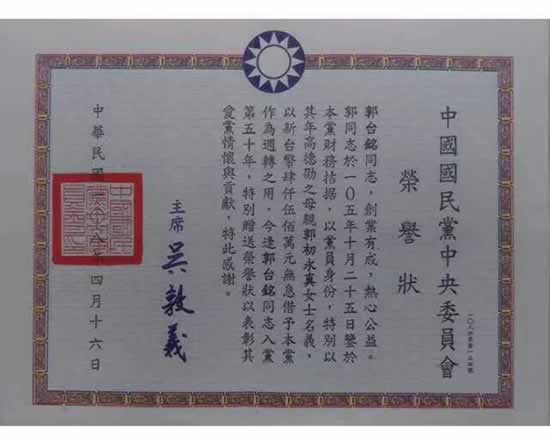 中國國民黨中央委員會
榮譽狀
郭台銘同志，創業有成，熱心公益。
郭同志於一０五年十月二十五日鑒於
本黨財務拮据，以黨員身份，特別以
其年高德勛之母親郭初永真女士名義，
以新台幣肆仟伍佰萬元無息借予本黨
作為週轉之用，今逢郭台銘同志入黨
第五十年，特別贈送榮譽狀以表彰其
愛黨情懷與貢獻，特此感謝。
主席 吳敦義
中華民國 年四月十六日